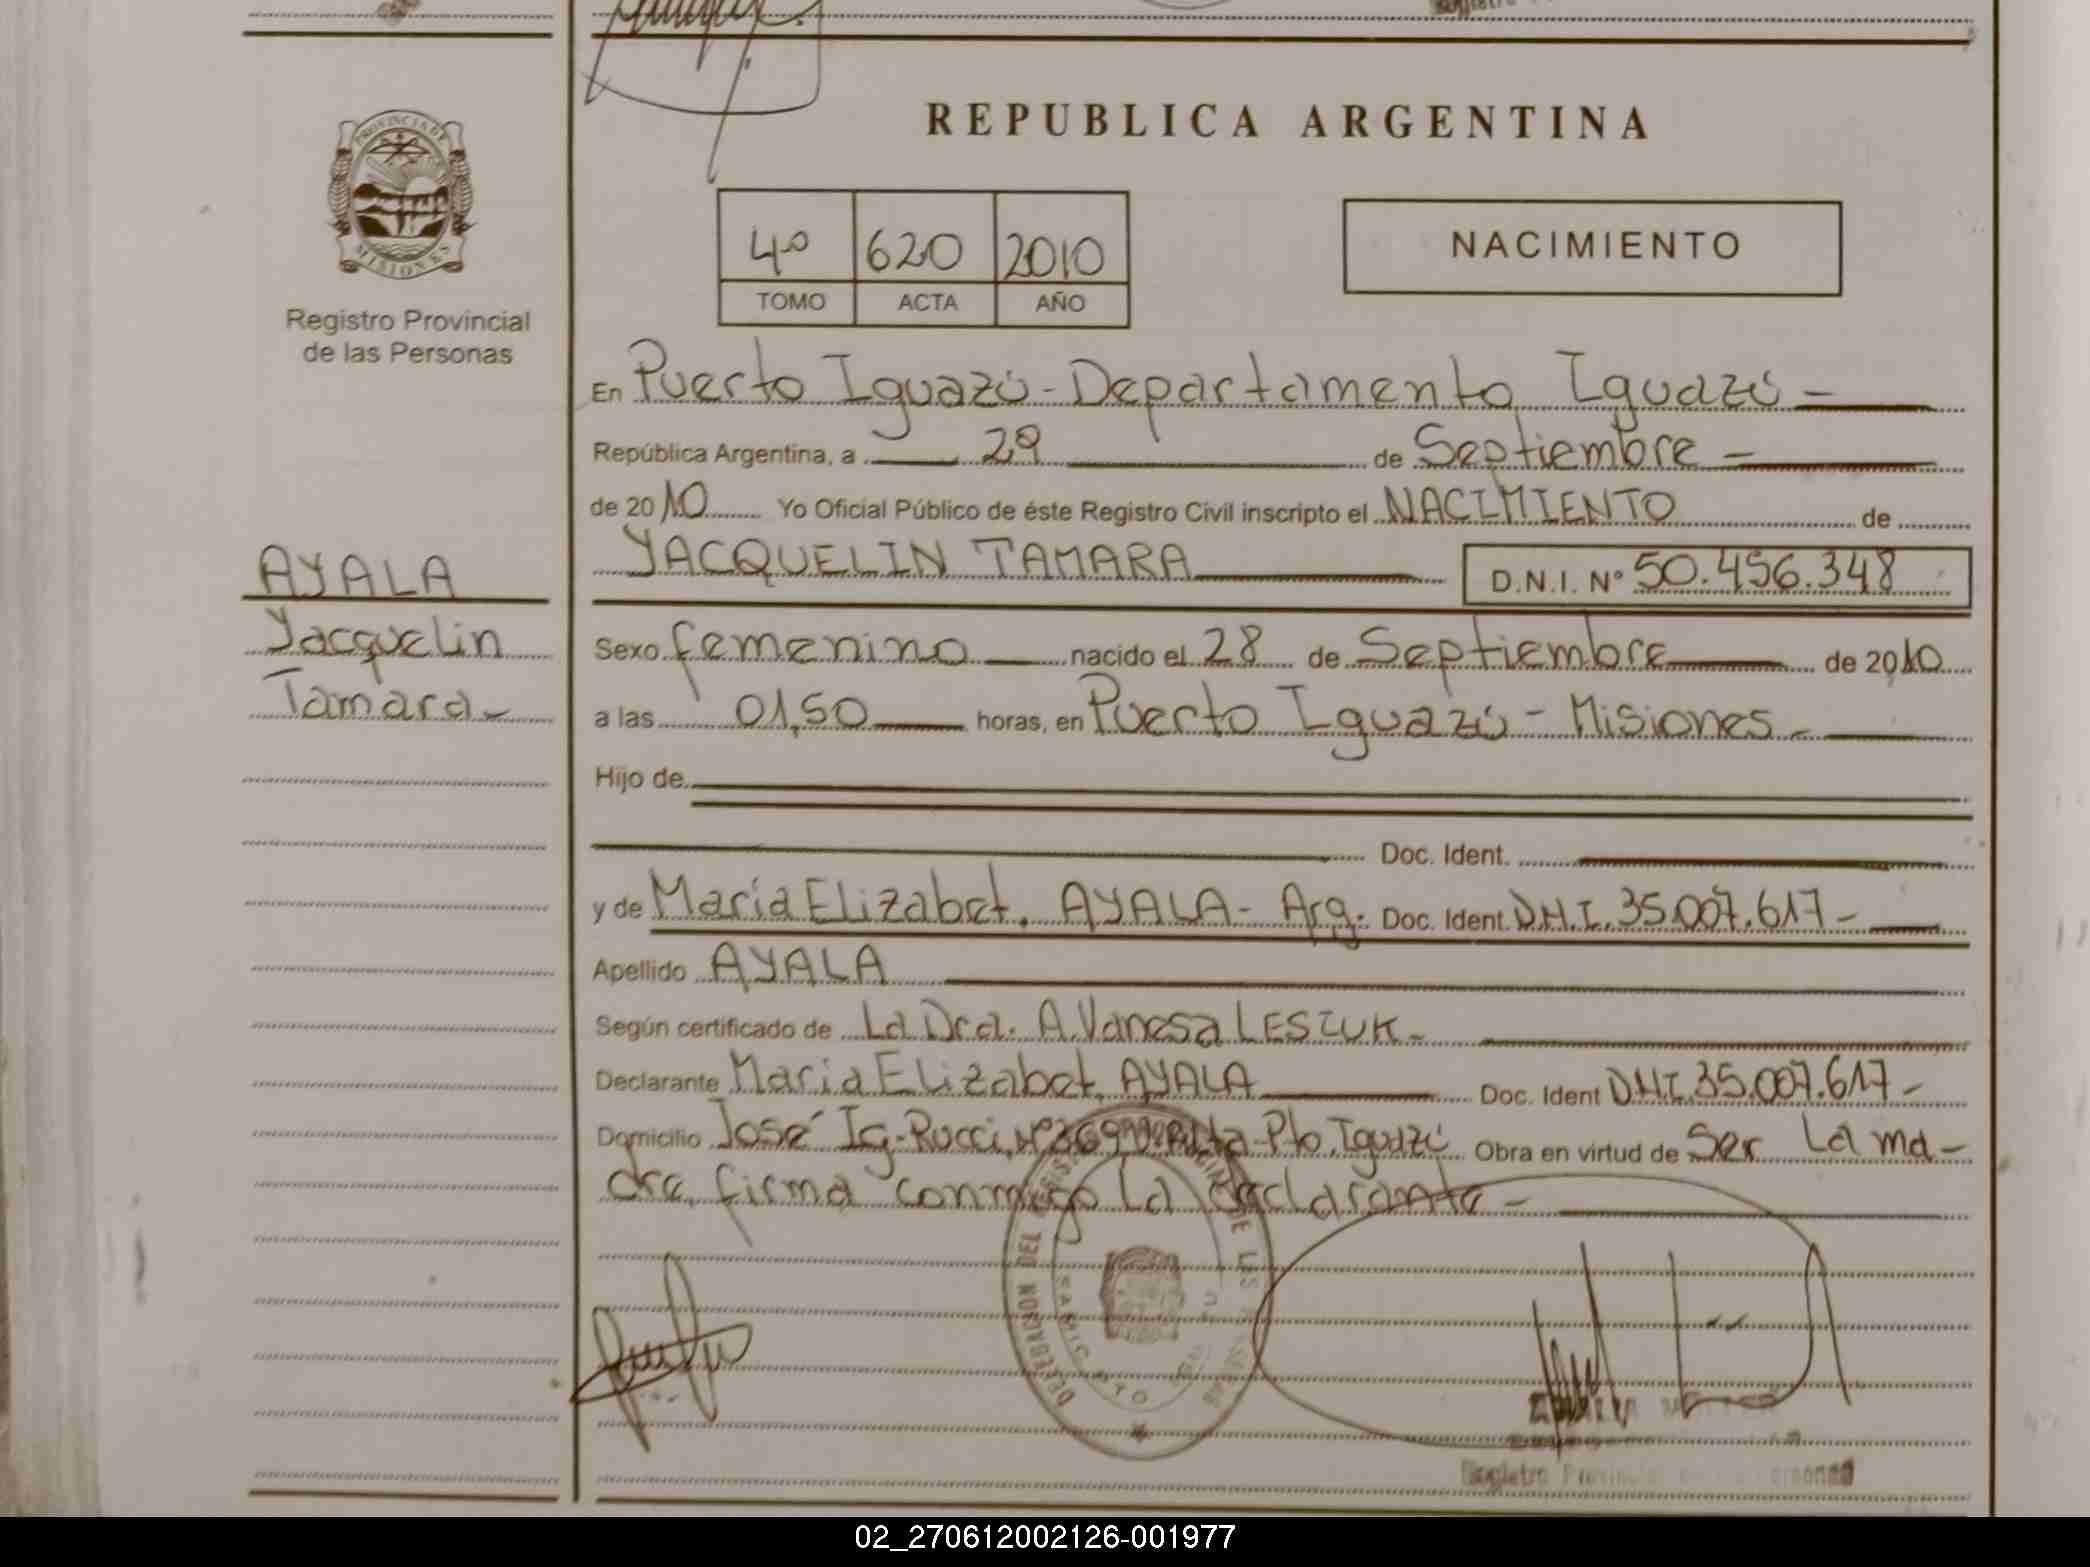 REPUBLICA ARGENTINA
PROVINCIA DE
MISIONES
Registro Provincial
de las Personas
4º 620 2010
TOMO ACTA AÑO
NACIMIENTO
En Puerto Iguazú - Departamento Iguazú -
República Argentina, a 29 de Septiembre -
de 2010 Yo Oficial Público de éste Registro Civil inscripto el NACIMIENTO de
YACQUELIN TAMARA D.N.I. Nº 50.456.348
AYALA
Yacquelin
Tamara -
Sexo femenino nacido el 28 de Septiembre de 2010
a las 01,50 horas, en Puerto Iguazú - Misiones -
Hijo de
Doc. Ident.
y de María Elizabet. AYALA - Arg. Doc. Ident. D.N.I. 35.007.617 -
Apellido AYALA
Según certificado de La Dra. A. Vanesa LESZUK -
Declarante María Elizabet. AYALA Doc. Ident D.N.I. 35.007.617 -
Domicilio José Ig. Rucci, Pto. Iguazú Obra en virtud de Ser La ma-
dre, firma conmigo La declarante -
DELEGACION DEL DE LAS
Registro
02_270612002126-001977